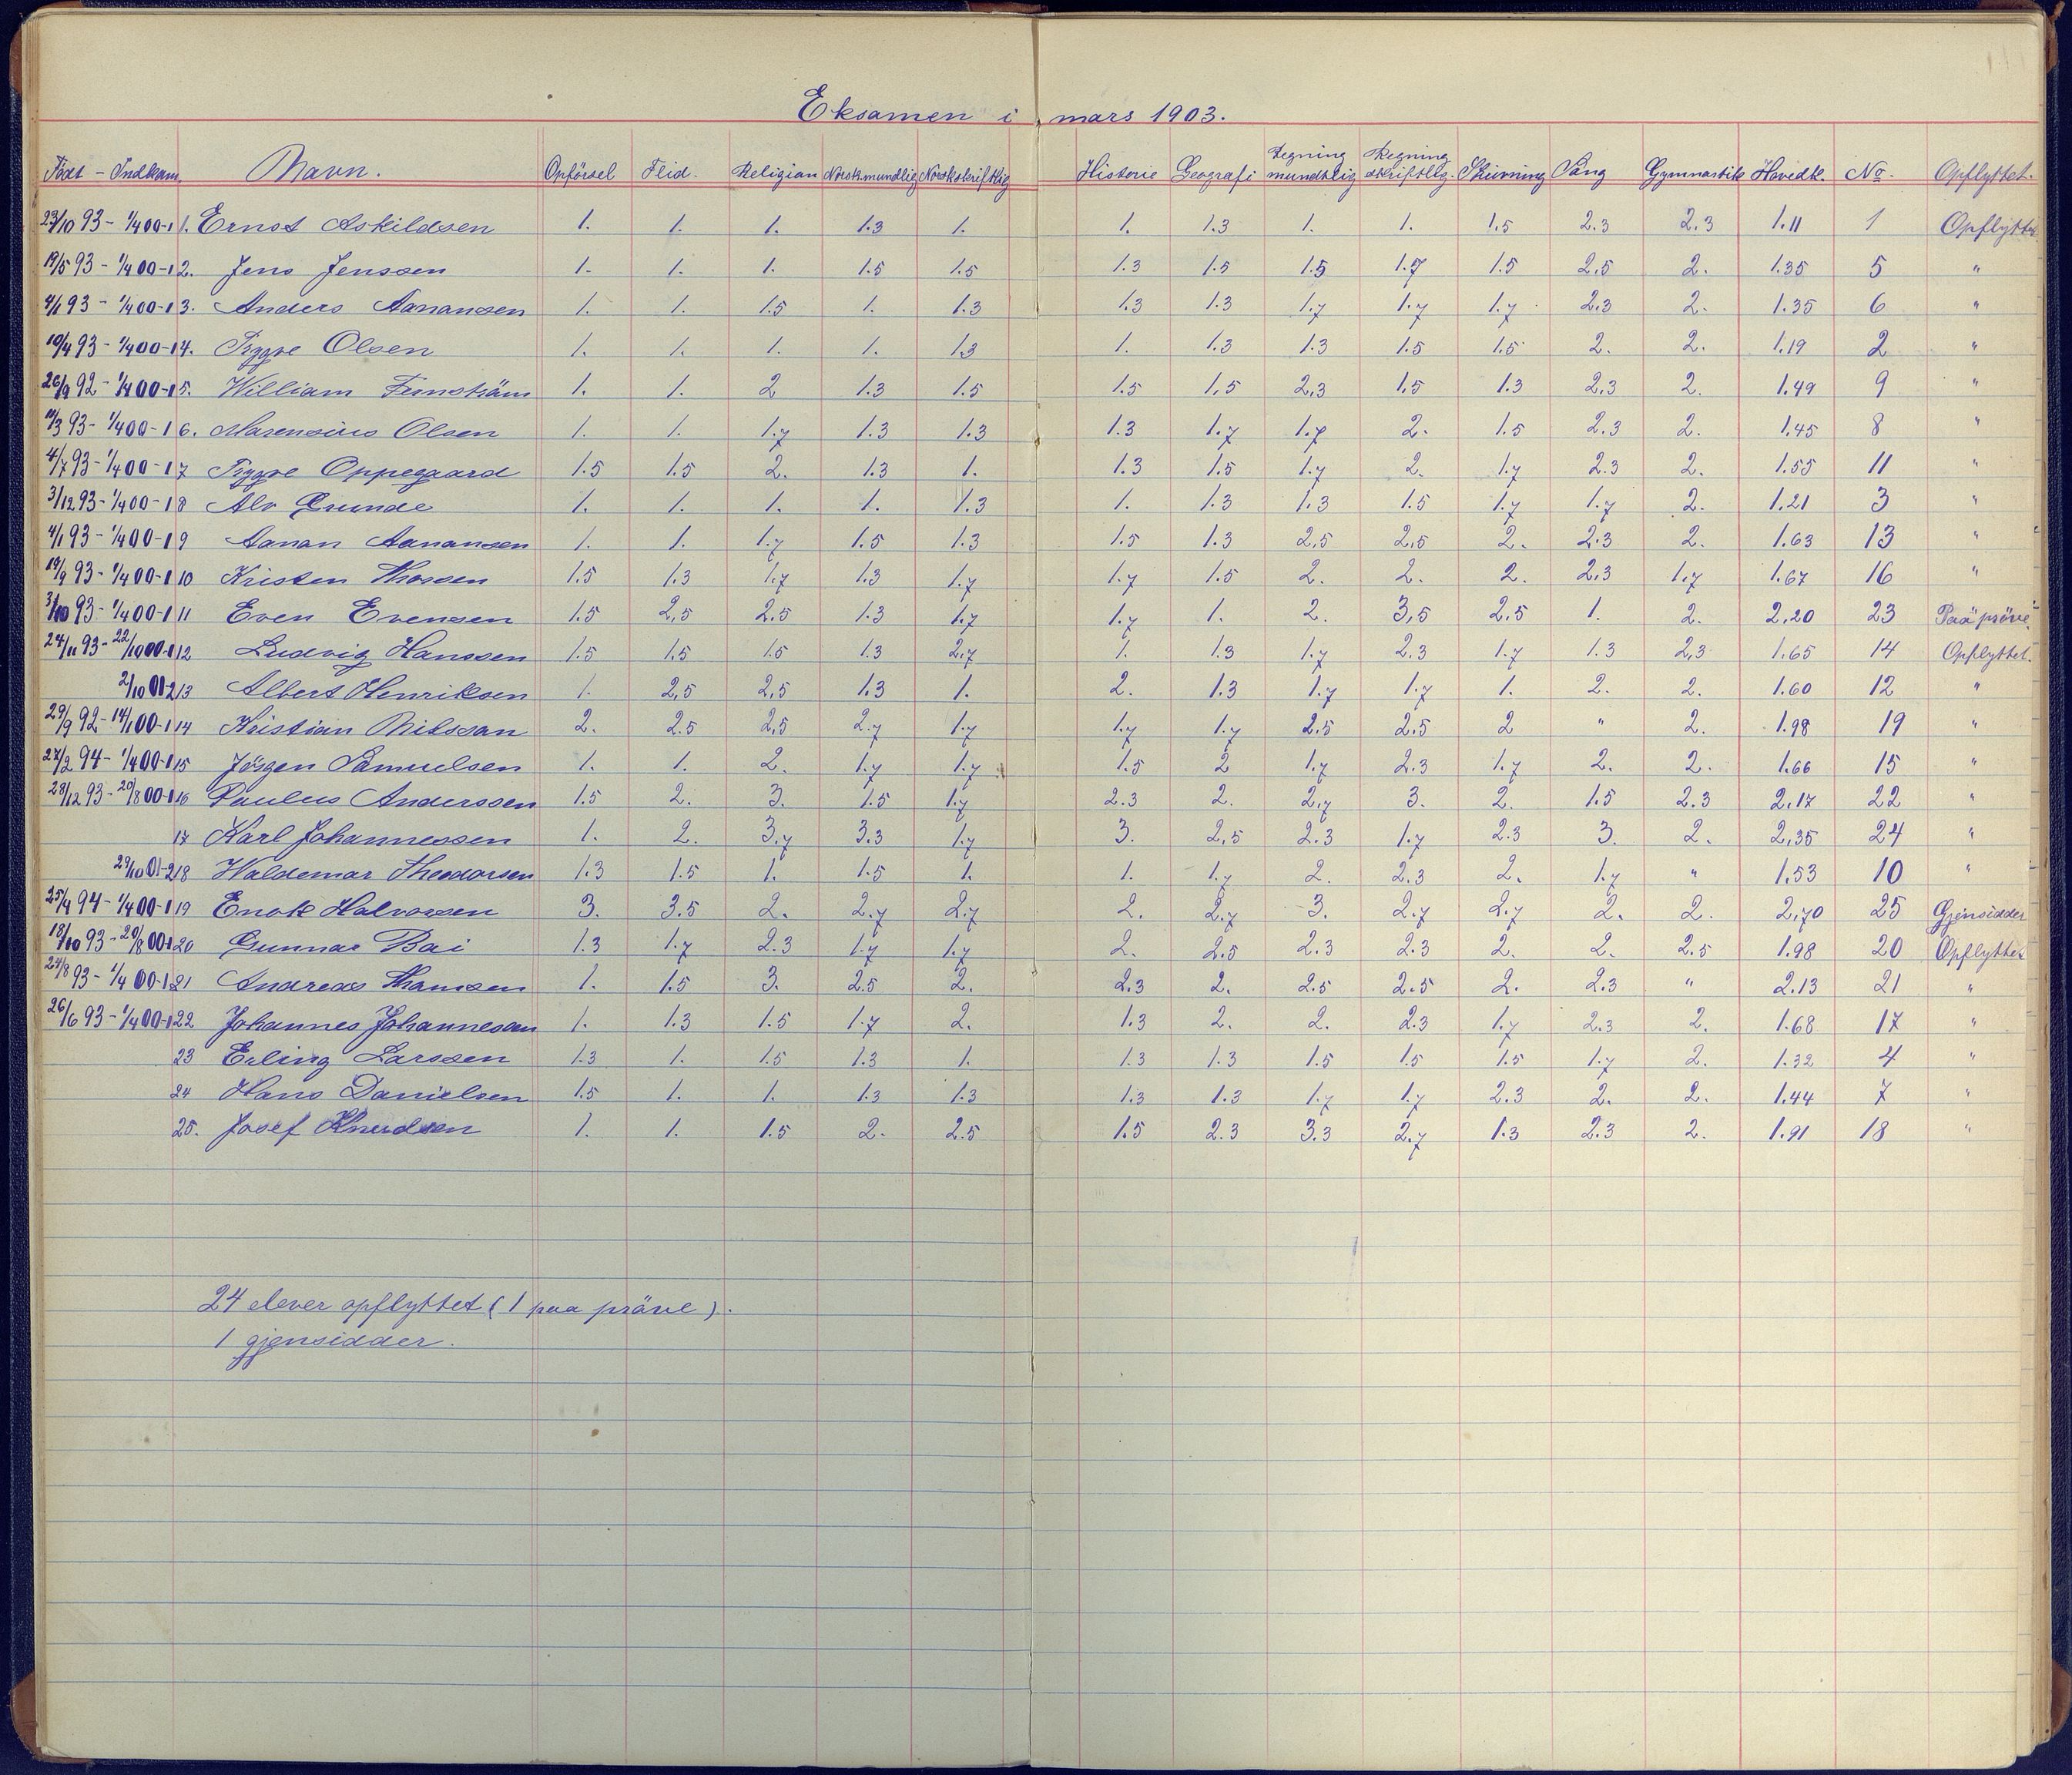 Eksamen i mars 1903.
Født - Indkom. Navn. Opførsel Flid. Religion Norsk mundtlig Norsk skriftlig Historie Geografi Regning mundtlig Regning skriftlig. Skrivning Sang Gymnastik Hovedk. No. Opflyttet.
23/10 93 - 1/4 00-1 1. Ernst Askildsen 1. 1. 1. 1.3 1. 1. 1.3 1. 1. 1.5 2.3 2.3 1.11 1 Opflyttet
19/5 93 - 1/4 00-1 2. Jens Jenssen 1. 1. 1. 1.5 1.5 1.3 1.5 1.5 1.7 1.5 2.5 2. 1.35 5 "
4/1 93 - 1/4 00-1 3. Anders Aanansen 1. 1. 1.5 1. 1.3 1.3 1.3 1.7 1.7 1.7 2.3 2. 1.35 6 "
10/4 93 - 1/4 00-1 4. Tryggve Olsen 1. 1. 1. 1. 1.3 1. 1.3 1.3 1.5 1.5 2. 2. 1.19 2 "
26/9 92 - 1/4 00-1 5. William Fernström 1. 1. 2 1.3 1.5 1.5 1.5 2.3 1.5 1.3 2.3 2. 1.49 9 "
14/3 93 - 1/4 00-1 6. Marensius Olsen 1. 1. 1.7 1.3 1.3 1.3 1.7 1.7 2. 1.5 2.3 2. 1.45 8 "
4/7 93 - 1/4 00-1 7 Tryggve Oppegaard 1.5 1.5 2. 1.3 1. 1.3 1.5 1.7 2. 1.7 2.3 2. 1.55 11 "
3/12 93 - 1/4 00-1 8 Alv Grunde 1. 1. 1. 1. 1.3 1. 1.3 1.3 1.5 1.7 1.7 2. 1.21 3 "
4/1 93 - 1/4 00-1 9 Aanan Aanansen 1. 1. 1.7 1.5 1.3 1.5 1.3 2.5 2.5 2. 2.3 2. 1.63 13 "
19/9 93 - 1/4 00-1 10 Kristen Thorsen 1.5 1.3 1.7 1.3 1.7 1.7 1.5 2. 2. 2. 2.3 1.7 1.67 16 "
3/10 93 - 1/4 00-1 11 Even Evensen 1.5 2.5 2.5 1.3 1.7 1.7 1. 2. 3.5 2.5 1. 2. 2.20 23 Paa prøve.
24/11 93 - 22/10 00-1 12 Ludvig Hanssen 1.5 1.5 1.5 1.3 2.7 1. 1.3 1.7 2.3 1.7 1.3 2.3 1.65 14 Opflyttet.
2/10 01-2 13 Albert Henriksen 1. 2.5 2.5 1.3 1. 2. 1.3 1.7 1.7 1. 2. 2. 1.60 12 "
29/9 92 - 14/1 00-1 14 Kristian Nilssan 2. 2.5 2.5 2.7 1.7 1.7 1.7 2.5 2.5 2 " 2. 1.98 19 "
27/2 94 - 1/4 00-1 15 Jörgen Samuelsen 1. 1. 2. 1.7 1.7 1.5 2 1.7 2.3 1.7 2. 2. 1.66 15 "
28/12 93 - 20/8 00-1 16 Paulus Anderssen 1.5 2. 3. 1.5 1.7 2.3 2. 2.7 3. 2. 1.5 2.3 2.17 22 "
17 Karl Johannessen 1. 2. 3.7 3.3 1.7 3. 2.5 2.3 1.7 2.3 3. 2. 2.35 24 "
29/10 01-2 18 Waldemar Theodorsen 1.3 1.5 1. 1.5 1. 1. 1.7 2. 2.3 2. 1.7 " 1.53 10 "
25/4 94 - 1/4 00-1 19 Enok Halvorsen 3. 3.5 2. 2.7 2.7 2. 2.7 3. 2.7 2.7 2. 2. 2.70 25 Gjensidder
18/10 93 - 20/8 00-1 20 Gunnar Boi 1.3 1.7 2.3 1.7 1.7 2. 2.5 2.3 2.3 2. 2. 2.5 1.98 20 Opflyttet
24/8 93 - 1/4 00-1 21 Andreas Thomsen 1. 1.5 3. 2.5 2. 2.3 2. 2.5 2.5 2. 2.3 " 2.13 21 "
26/6 93 - 1/4 00-1 22 Johannes Johannesen 1. 1.3 1.5 1.7 2. 1.3 2. 2. 2.3 1.7 2.3 2. 1.68 17 "
23 Erling Larssen 1.3 1. 1.5 1.3 1. 1.3 1.3 1.5 1.5 1.5 1.7 2. 1.32 4 "
24 Hans Danielsen 1.5 1. 1. 1.3 1.3 1.3 1.3 1.7 1.7 2.3 2. 2. 1.44 7 "
25. Josef Knudsen 1. 1. 1.5 2. 2.5 1.5 2.3 3.3 2.7 1.3 2.3 2. 1.91 18 "
24 elever opflyttet (1 paa prøve).
1 gjensidder.